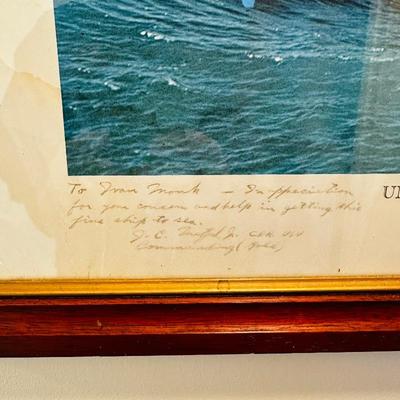 To Ivan Monk — In appreciation
for your concern and help in getting this
fine ship to sea.
J. E. Jr. CDR USN
Commanding
UN